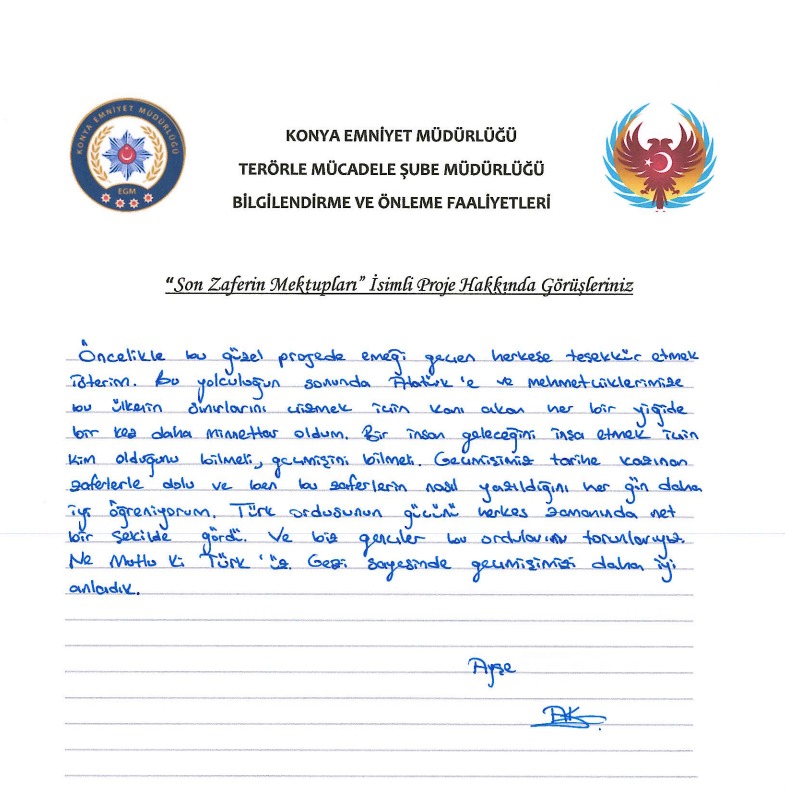 KONYA EMNİYET MÜDÜRLÜĞÜ
EGM
KONYA EMNİYET MÜDÜRLÜĞÜ
TERÖRLE MÜCADELE ŞUBE MÜDÜRLÜĞÜ
BİLGİLENDİRME VE ÖNLEME FAALİYETLERİ
“Son Zaferin Mektupları” İsimli Proje Hakkında Görüşleriniz
Öncelikle bu güzel projede emeği geçen herkese teşekkür etmek
isterim. Bu yolculuğun sonunda Atatürk'e ve mehmetçiklerimize
bu ülkenin sınırlarını çizmek için kanı akan her bir yiğide
bir kez daha minnettar oldum. Bir insan geleceğini inşa etmek için
kim olduğunu bilmeli, geçmişini bilmeli. Geçmişimiz tarihe kazınan
zaferlerle dolu ve ben bu zaferlerin nasıl yazıldığını her gün daha
iyi öğreniyorum. Türk ordusunun gücünü herkes zamanında net
bir şekilde gördü. Ve biz gençler bu orduların torunlarıyız.
Ne Mutlu ki Türk'üz. Gezi sayesinde geçmişimizi daha iyi
anladık.
Ayşe
AK